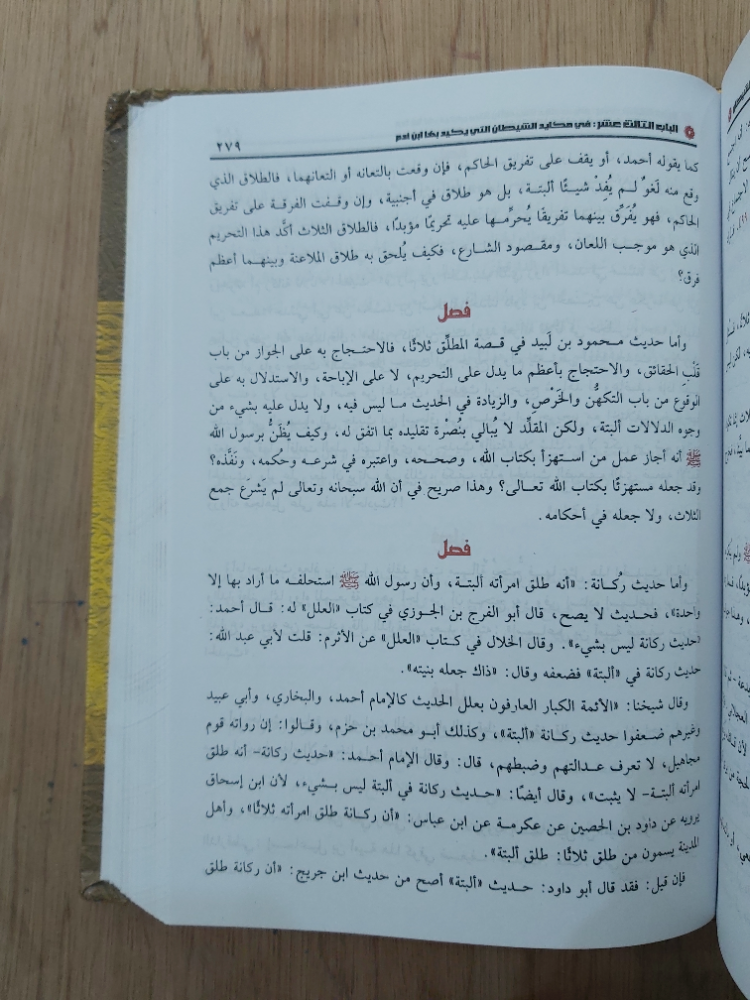 الباب الثالث عشر: في مكايد الشيطان التي يكيد بها ابن آدم ٢٧٩
كما يقوله أحمد، أو يقف على تفريق الحاكم، فإن وقعت بالتعانه أو التعانهما، فالطلاق الذي
وقع منه لَغوٌ لـم يُفِدْ شيـئًا ألبتة، بل هو طلاق في أجنبية، وإن وقـفـت الفرقة على تفريق
الحاكم، فهو يُفَرِّق بينهما تفريقًا يُحرِّمـها عليه تحريمًا مؤبدًا، فالطلاق الثلاث أكَّد هذا التحريم
الذي هو موجب اللعان، ومقـصود الشارع، فكيف يُلحق به طلاق الملاعنة وبينهمـا أعظم
فرق؟
فصل
وأما حديث مـحمود بن لَبيد في قـصة المطلِّق ثلاثًا، فالاحتـجاج به على الجواز من باب
قَلْبِ الحقائق، والاحتجاج بأعظم ما يدل على التحريم، لا على الإباحة، والاستدلال به على
الوقوع من باب التكهُّن والخَرْصِ، والزيادة في الحديث مـا ليس فيه، ولا يدل عليه بشيء من
وجوه الدلالات ألبتة، ولكن المقلِّد لا يُبالي بنُصْرة تقليده بما اتفق له، وكيف يُظَنُّ برسول الله
ﷺ أنه أجاز عمل من اسـتهزأ بكتاب الله، وصحـحه، واعتبره في شرعـه وحُكمه، ونَفَّذه؟
وقد جعله مستهزئًا بكتاب الله تعـالى؟ وهذا صريح في أن الله سبحانه وتعالى لم يَشرَع جمع
الثلاث، ولا جعله في أحكامه.
فصل
وأما حديث ركُانة: «أنه طلق امرأته ألبتة، وأن رسول الله ﷺ استحلفـه ما أراد بها إلا
واحدة»، فحديث لا يصح، قال أبو الفرج بن الجوزي في كتاب «العلل» له: قـال أحمد:
«حديث ركانة ليس بشيء». وقال الخلال في كـتاب «العلل» عن الأثرم: قلت لأبي عبد الله:
حديث ركانة في «ألبتة» فضعفه وقال: «ذاك جعله بنيته».
وقال شيخنا: «الأئمة الكبار العارفون بعلل الحديث كالإمام أحمد، والبخاري، وأبي عبيد
وغيرهم ضـعفوا حديث ركـانة «ألبتة»، وكذلك أبـو محمد بن حزم، وقـالوا: إن رواته قوم
مجاهيل، لا تعرف عـدالتهم وضبطهم، قال: وقال الإمام أحمـد: «حديث ركانة- أنه طلق
امرأته ألبتـة- لا يثبت»، وقال أيضًا: «حـديث ركانة في ألبتة ليس بـشيء، لأن ابن إسحاق
يرويه عن داود بن الحصين عن عكرمة عن ابن عباس: «أن ركانة طلق امرأته ثلاثًا»، وأهل
المدينة يسمون من طلق ثلاثًا: طلق ألبتة».
فإن قيل: فقد قال أبو داود: حـديث «ألبتة» أصح من حديث ابن جريج: «أن ركانة طلق